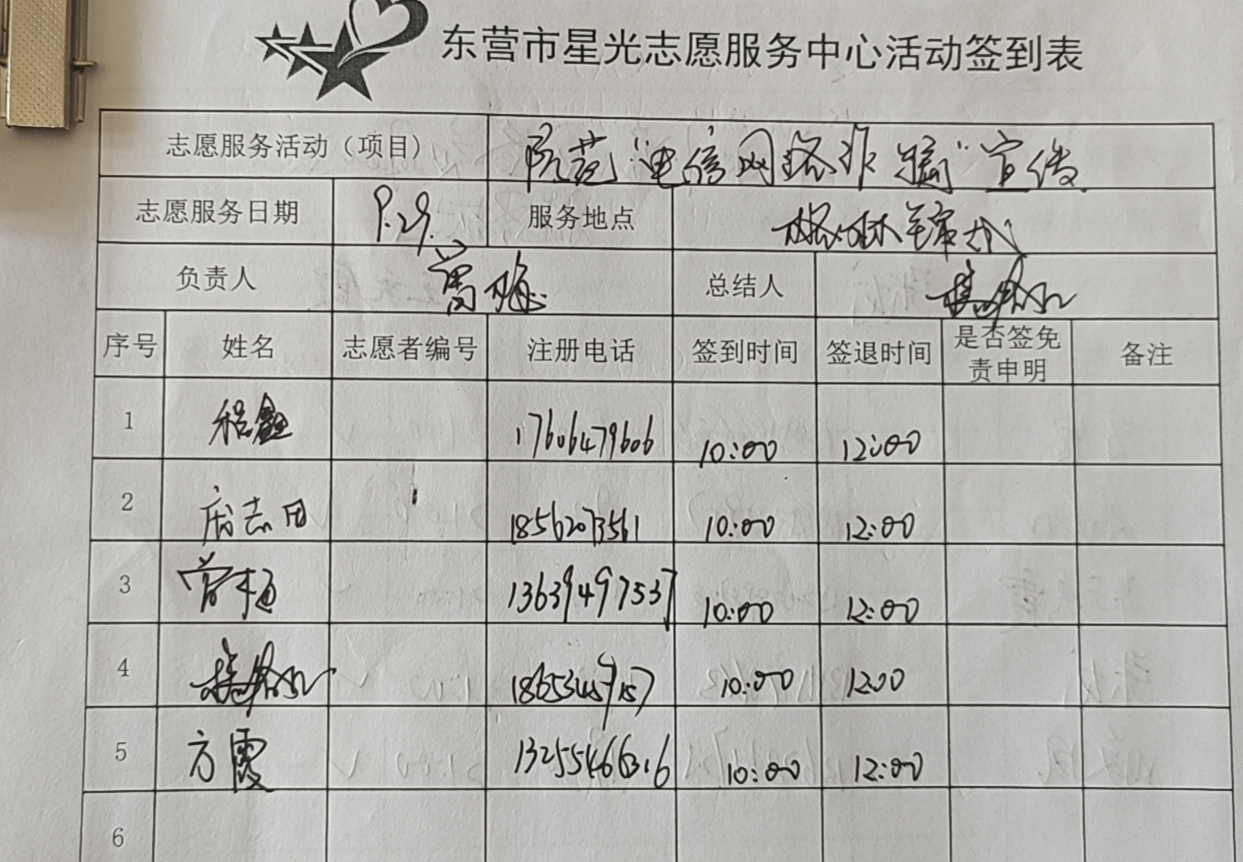 东营市星光志愿服务中心活动签到表
志愿服务活动（项目） 防范“电信网络诈骗”宣传
志愿服务日期 9.29. 服务地点
负责人 总结人
序号 姓名 志愿者编号 注册电话 签到时间 签退时间 是否签免责申明 备注
1 17606479606 10:00 12:00
2 18562073561 10:00 12:00
3 13639497537 10:00 12:00
4 10:00 1200
5 方霞 10:00 12:00
6